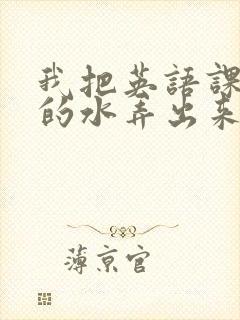 我把英語課
的水弄出来
薄京官